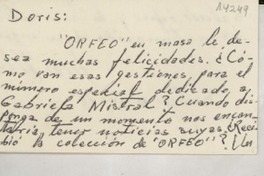 14249
Doris:
"ORFEO" en masa le de-
sea muchas felicidades. ¿Có-
mo van esas gestiones, para el
número especial dedicado, a
Gabriela Mistral? Cuando dis-
ponga de un momento nos encan-
taría, tener noticias suyas. ¿Reci-
bió la colección de "ORFEO"?